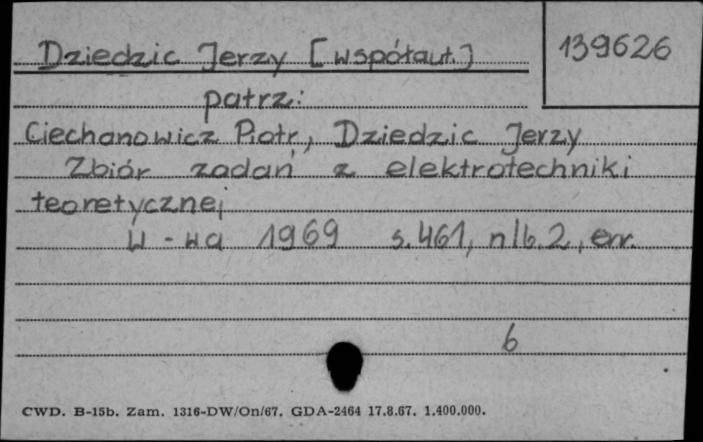 Dziedzic Jerzy [współaut.]
139626
patrz:
Ciechanowicz Piotr, Dziedzic Jerzy
Zbiór zadań z elektrotechniki
teoretycznej
W-wa 1969 s.461, nlb.2, err.
6
CWD. B-15b. Zam. 1316-DW/On/67. GDA-2464 17.8.67. 1.400.000.